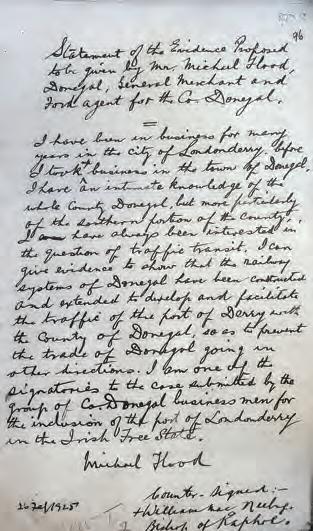 96
Statement of the Evidence Proposed
to be given by Mr. Micheal Flood
Donegal, General Merchant and
Ford agent for the Co. Donegal.
I have been in business for many
years in the city of Londonderry before
I took business in the town of Donegal.
I have an intimate knowledge of the
whole County Donegal, but more particularly
of the southern portion of the County.
I have always been interested in
the question of traffic transit. I can
give evidence to show that the railway
systems of Donegal have been constructed
and extended to develop and facilitate
the traffic of the port of Derry with
the County of Donegal, so as to prevent
the trade of Donegal going in
other directions. I am one of the
signatories to the case submitted by the
group of Co. Donegal business men for
the inclusion of the port of Londonderry
in the Irish Free State.
Micheal Flood
Counter-signed:-
+William Mac Neely
Bishop of Raphoe